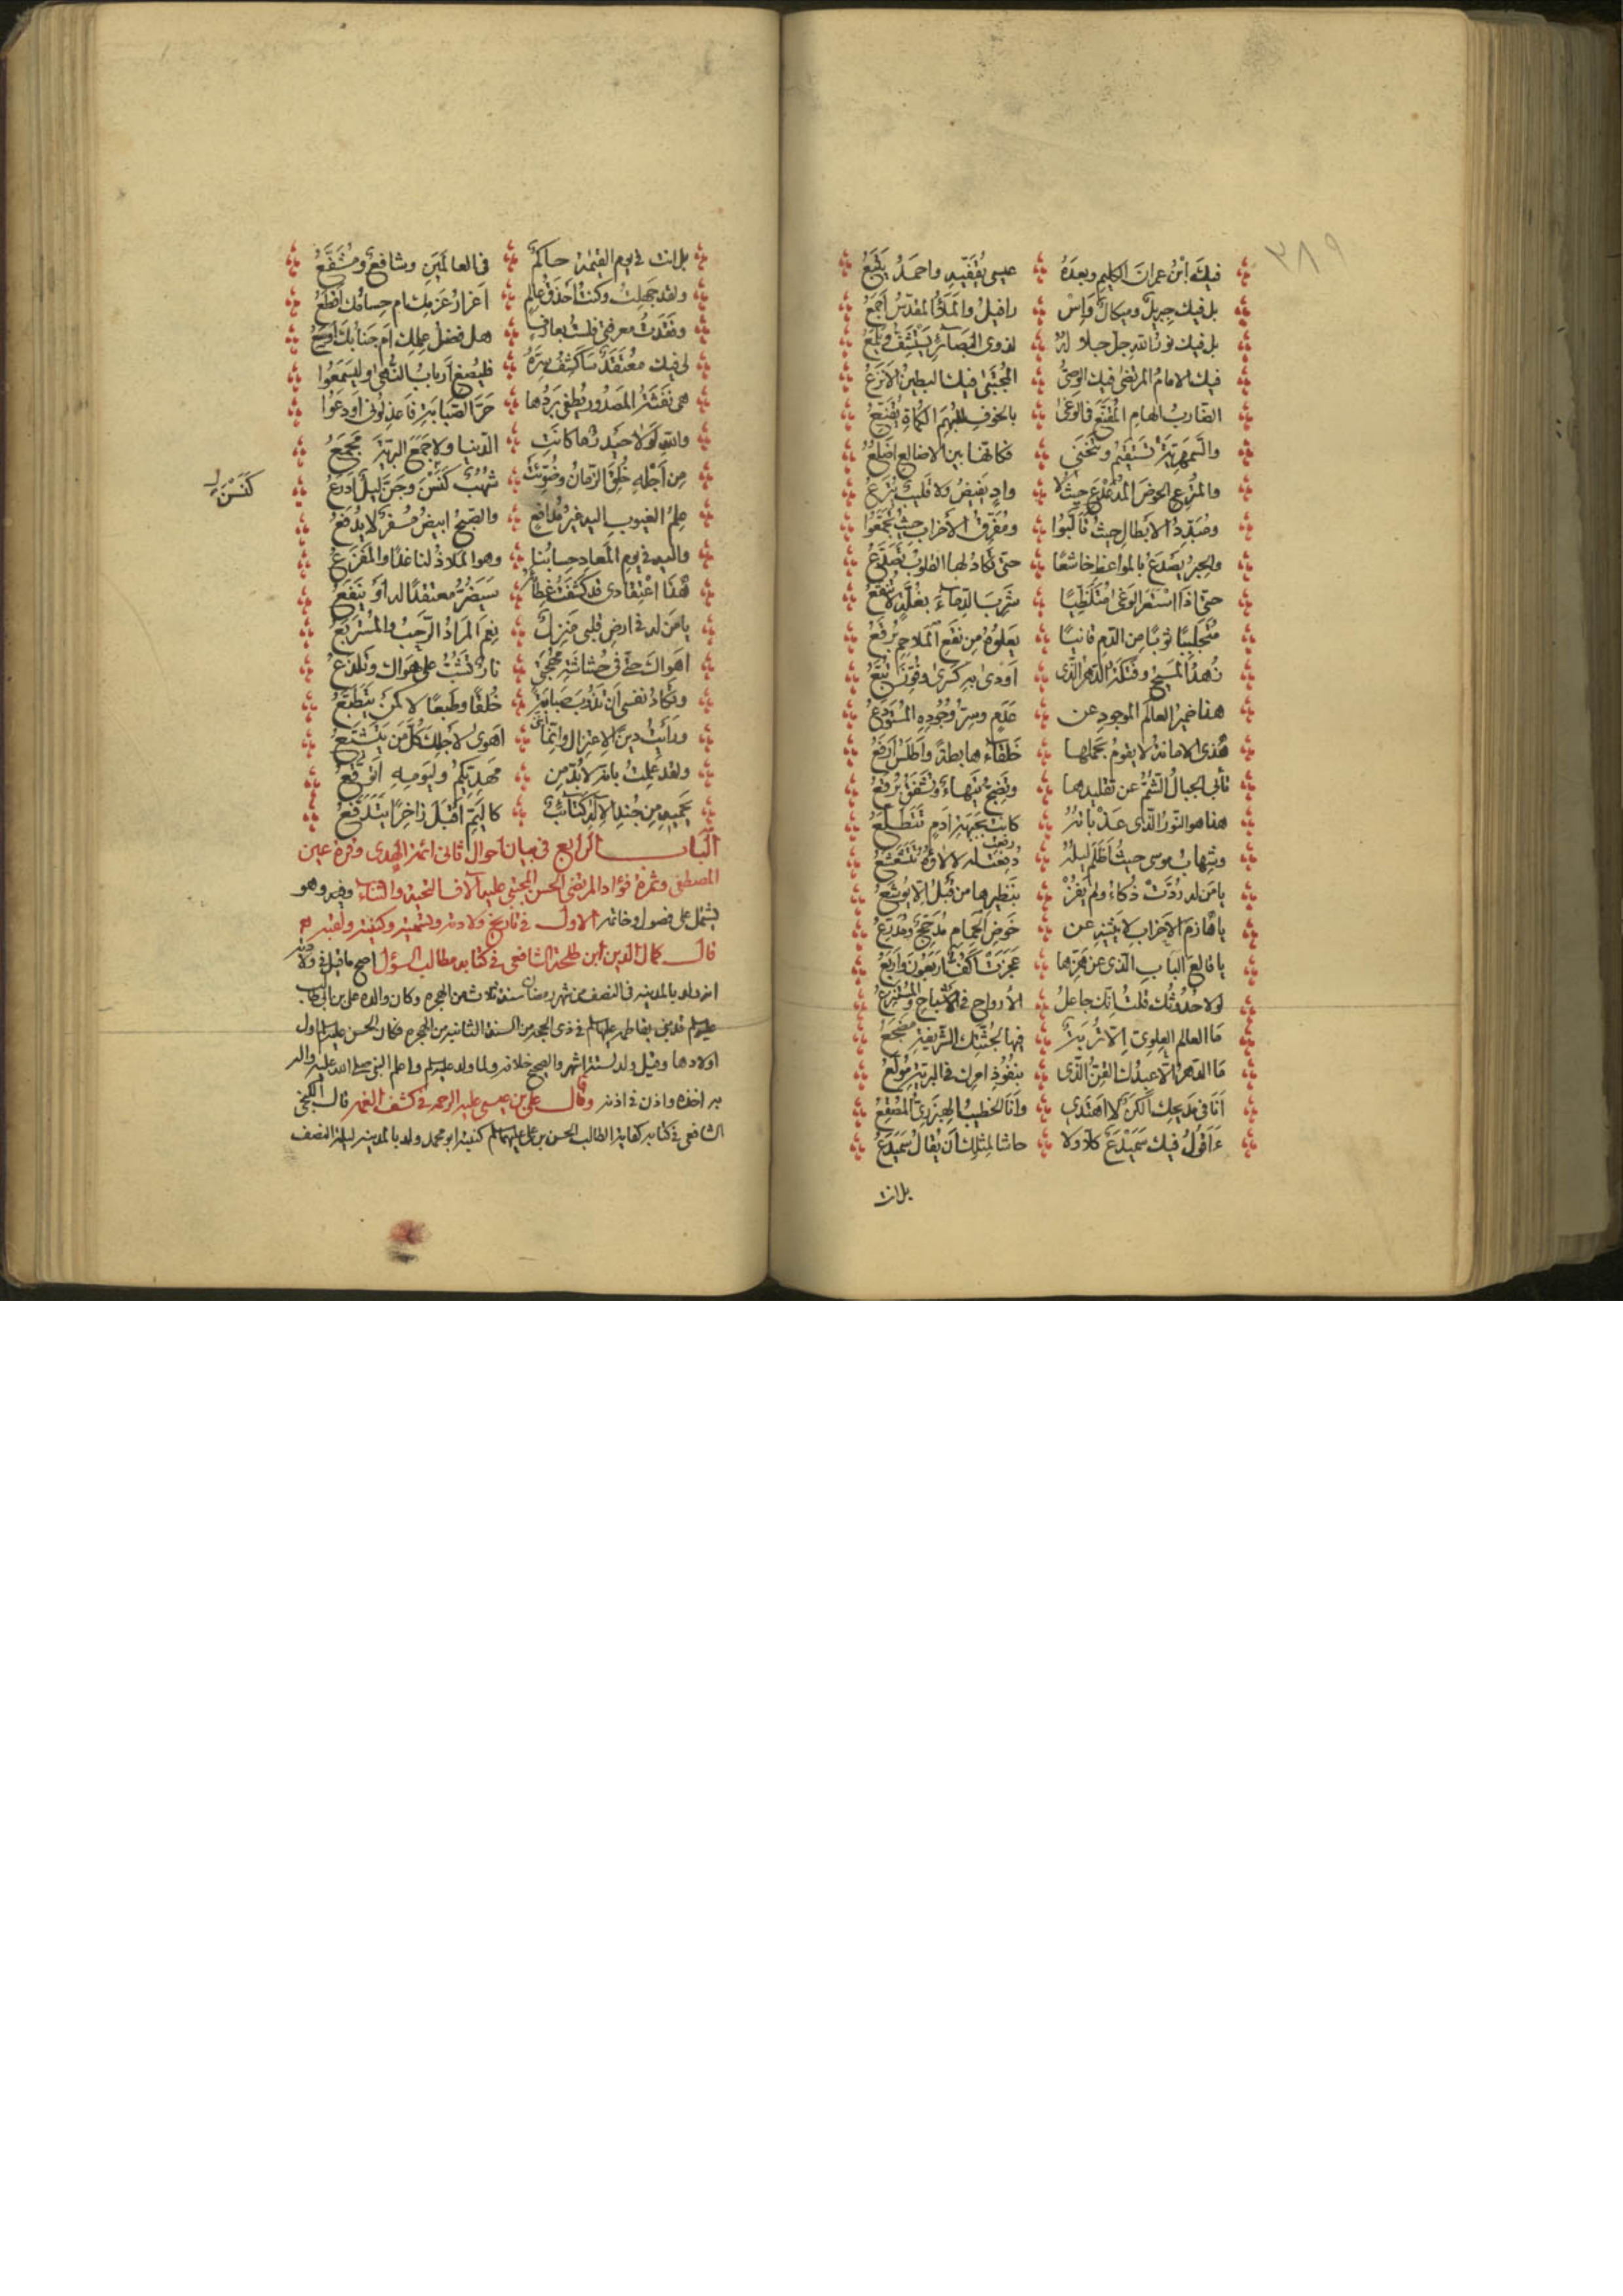 ٣٨٩
فيك ابْنُ عِمرانَ الكليمِ وبعدَهُ عيسى يُقَفّيهِ واحمَدُ يَتْبَعُ
بل فيك جبريلٌ وميكالٌ وَاِسْ رافيلُ والمَلَأُ المقدّسُ اَجمَعُ
بل فيك نورُ اللهِ جلّ جلالهُ لذوى البَصَآئرِ يُسْتَشفُّ ويُلمَعُ
فيك الامامُ المرتضٰى فيك الوصىُّ المُجتَبٰى فيك البطينُ الانزَعُ
الضّاربُ الهامِ المُقنَّعِ فى الوَغٰى بالخوفِ للبُهَمِ الكُماةِ يُقَنِّعُ
والسَّمهَريّةُ تستقيمُ وتَنْحَنِي فكانّها بين الاضالعِ اَضْلُعُ
والمُترِعُ الحوضَ المُدَعْدَعَ حيثُ لا وادٍ يَفيضُ ولا قليبٌ يُترَعُ
ومُبَدِّدُ الابطالِ حيثُ تَاَلَّبُوا ومُفرِّقُ الاَحزابِ حيثُ تَجمَّعُوا
والحِبرُ يَصْدَعُ بالمواعظِ خاشعًا حتّى تكادُ لها القلوبُ تَصَدَّعُ
حتّى اِذَا اسْتَعَرَ الوَغٰى مُتَلَظِّيًا شرِبَ الدِّمآءَ بغُلّةٍ لا تُنقَعُ
مُتَجَلْبِبًا ثوبًا مِن الدّمِ قانيًا يَعلوهُ مِن نَقعِ المَلاحِمِ بُرقُعُ
زُهدُ المَسيحِ وفَتْكةُ الدّهرِ الّذى اَودٰى به كِسرٰى وفَوَّزَ تُبَّعُ
هذا ضميرُ العالمِ الموجودِ عن عَدَمٍ وسِرُّ وُجُودِهِ المُسْتَودَعُ
هٰذى الامانةُ لا يقومُ بحَملِها خَلقآءُ هابطةٌ واَطلَسُ اَرفَعُ
تأبى الجبالُ الشّمُّ عن تقليدِها وتَضِجُّ تَيهاءٌ وتُشفِقُ بُرقُعُ
هذا هو النّورُ الّذى عَذَباتُهُ كانت بجَبْهةِ اٰدمٍ تَتَطَلَّعُ
وشِهابُ موسى حيثُ اَظلَمَ لَيلُهُ رُفِعَتْ له لألاؤُهُ تَتَشَعْشَعُ
رفعت
يا مَن له رُدَّتْ ذُكاءُ ولم يَفُزْ بنَظيرِها مِن قَبلُ اِلّا يُوشَعُ
يا هازِمَ الاَحزابِ لا يَثنيهِ عن خَوضِ الحِمامِ مُدَجَّجٌ ومُدَرَّعُ
يا قالعَ البابِ الّذى عن هَزِّها عَجَزَتْ اَكُفٌّ اَربَعُونَ واَربَعُ
لولا حُدوثُك قلتُ اِنّك جاعلُ الاَرواحِ فى الاَشباحِ والمُسْتَنزِعُ
مَا العالَمُ العِلوىُّ اِلّا تُربَةٌ فيها لِجُثَّتِك الشّريفةِ مَضجَعُ
مَا الدّهرُ اِلّا عبدُك القِنُّ الّذى بنُفُوذِ امرِك فى البريّةِ مُولَعُ
اَنَا فى مَديحِك اَلكَنٌ لا اَهتَدِي واَنَا الخطيبُ الهِبرِزِىُّ المِصْقَعُ
ءَاَقُولُ فيك سَمَيْدَعٌ كلّا ولا حاشا لمِثلِك اَن يُقالَ سَمَيدَعُ
بل انت
بل انت فى يوم القيٰمةِ حاكمٌ فى العالَمينَ وشافعٌ ومُشَفَّعُ
ولقد جَهِلتُ وكنتُ اَحذَقَ عالمٍ اَغِرارُ عَزمِك ام حسامُك اَقْطَعُ
وفَقَدتُ معرفتى فلستُ بعارفٍ هل فضلُ عِلمِك اَم جَنابُك اَوسَعُ
لى فيك معتقَدٌ سأكشِفُ سِرَّهُ فليُصغِ اَربابُ النُّهٰى وليَسمَعُوا
هى نَفثةُ المَصدُورِ يُطفى بَردُها حَرَّ الصَّبابَةِ فاعذِلُونى اَودَعُوا
واللهِ لَولا حَيدرٌ ما كانَتِ الدّنيا ولا جَمَعَ البريّةَ مَجمَعُ
مِن اَجْلِهِ خُلِقَ الزّمانُ وضُوِّئَتْ شُهُبٌ كَنَسْنَ وجَنَّ لَيلٌ اَدرَعُ
كَنَسْنَ
عِلمُ الغيوبِ اليه غيرُ مُدافَعٍ والصّبحُ ابيضُ مُسفِرٌ لا يُدفَعُ
واليه فى يومِ المَعادِ حسابُنا وهو المَلاذُ لنا غدًا والمَفزَعُ
هٰذَا اعتِقادى قد كَشَفتُ غِطاءَهُ سَيَضُرُّ معتقِدًا له اَو يَنفَعُ
يا مَن له فى ارضِ قلبى منزلٌ نِعمَ المُرادُ الرَّحبُ والمُسْتَربَعُ
اَهواكَ حتّى فى حُشاشَةِ مُهجَتى نارٌ تَشُبُّ على هواك وتَلذَعُ
وتكادُ نفسى اَن تَذُوبَ صَبابَةً خُلقًا وطَبعًا لا كمَن يَتَطَبَّعُ
ورَأيتُ دينَ الاِعتِزالِ واِنّنى اَهوٰى لاَجلِك كلَّ مَن يَتشَيَّعُ
ولقد عَلِمتُ بانّه لا بُدَّ مِن مَهديِّكُم وليَومِهِ اَتَوَقَّعُ
يَحميهِ مِن جُندِ الاِلٰهِ كَتآئبٌ كاليَمِّ اَقبَلَ زاخِرًا يَتَدَفَّعُ
البـاب الرابع فى بيان احوال ثانى ائمة الهدى وقرة عين
المصطفى وثمرة فؤاد المرتضى الحسن المجتبى عليه آلاف التحية والثناء وفيه وهو
يشتمل على فصول وخاتمه الاول فى تاريخ ولادته وتسميته وكنيته ولقبه
قال كمال الدين ابن طلحة الشافعى فى كتابه مطالب السؤل اصح ما قيل فى ولادته
انه ولد بالمدينه فى النصف من شهر رمضان سنة ثلاث من الهجرة وكان والده على بن ابى طالب
عليه السلم قد بنى بفاطمه عليها السلم فى ذى الحجة من السنة الثانية من الهجرة فكان الحسن عليه السلم اول
اولادها وقيل ولد لستة اشهر والصحيح خلافه ولما ولد عليه السلم واعلم النبى صلى الله عليه واله
به اخذه واذن فى اذنه وقال على بن عيسى عليه الرحمه فى كشف الغمه قال الكنجى
الشافعى فى كتابه كفاية الطالب الحسن بن على عليهما السلم كنيته ابو محمد ولد بالمدينه ليلة النصف